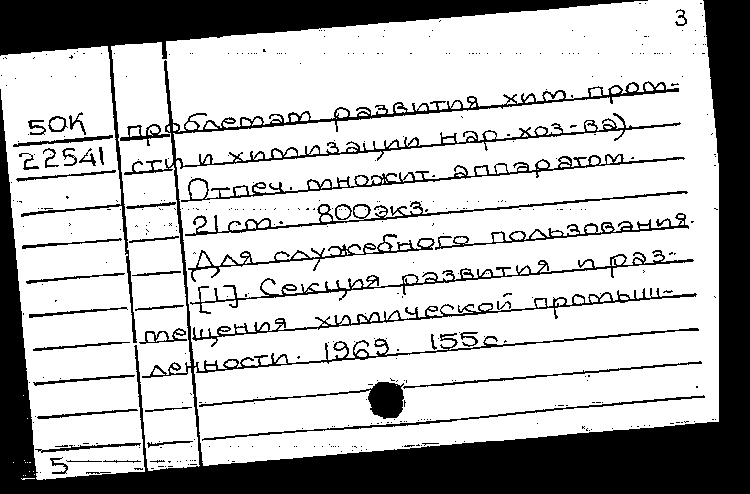 3
50К
22541
проблемам развития хим. пром-
сти и химизации нар. хоз-ва).
Отпеч. множит. аппаратом.
21 cm. 800 экз.
Для служебного пользования.
[1]. Секция развития и раз-
мещения химической промыш-
ленности. 1969. 155 с.
5